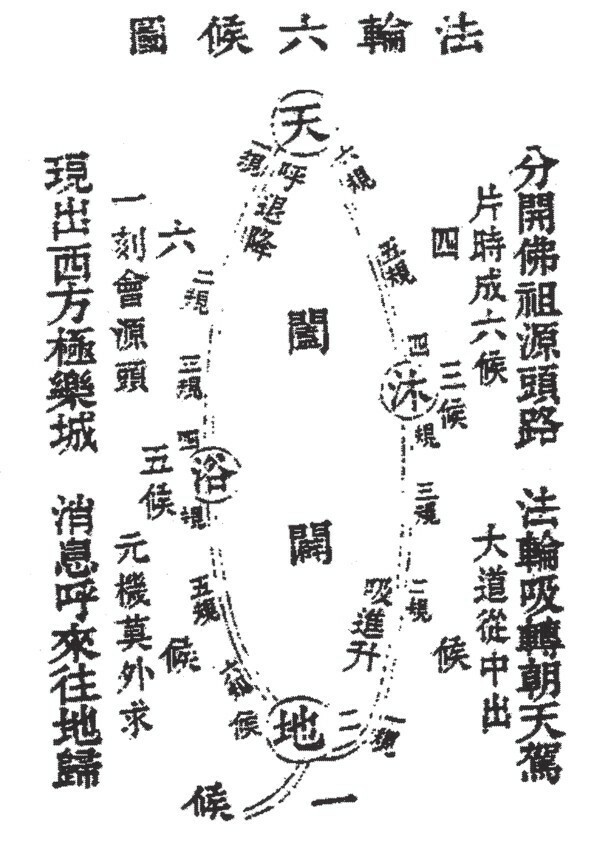 法輪六候圖
分開佛祖源頭路 法輪吸轉朝天駕
片時成六候 大道從中出
一刻會源頭 元機莫外求
現出西方極樂城 消息呼來往地歸
天
六規
五規
四規
沐
三規
二規
一規
吸進升
地
一規
呼退降
二規
三規
四規
浴
五規
六規
闔
闢
一候
二候
三候
四候
五候
六候